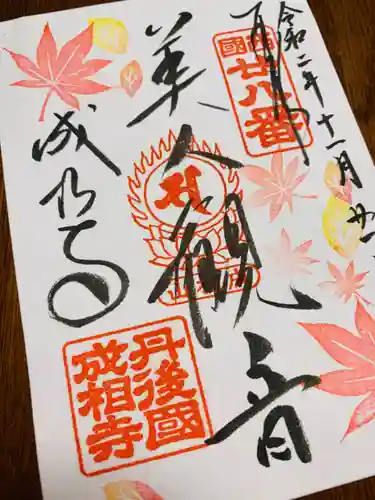 令和二年十一月廿一日
奉拝
西國廿八番
美人観音
成相寺
丹後國成相寺